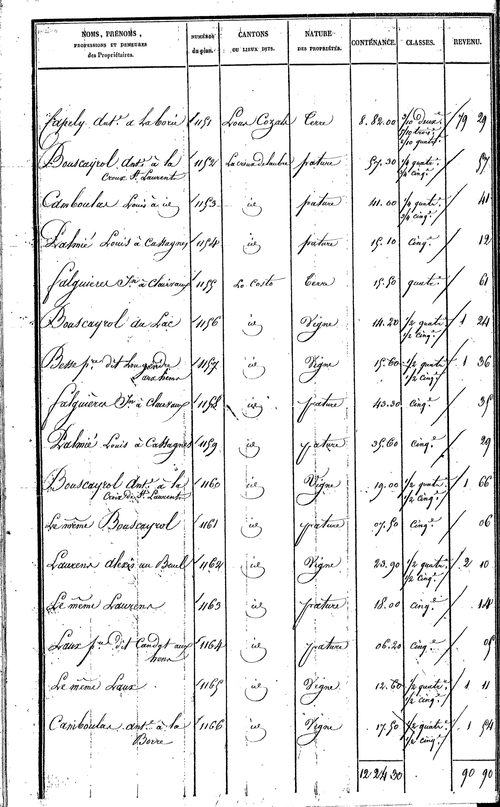 NOMS, PRÉNOMS, PROFESSIONS ET DEMEURES des Propriétaires. NUMÉROS du plan. CANTONS OU LIEUX DITS. NATURE DES PROPRIÉTÉS. CONTENANCE. CLASSES. REVENU.
antne. à La borie 1151 Terre 8. 82. 00 79 29
Bouscayrol antne. à la Croix St. Laurent 1152 pature 57. 30 57
Camboulas Louis à id 1153 id pature 41. 00 1/4 quatre. 3/4 cinq. 41
Palmié Louis à Cassagnes 1154 id pature 15. 10 cinq. 12
falguières Jn. à Clairvaux 1155 Lo Costo Terre 15. 50 quatre. 61
Bouscayrol du Lac 1156 id Vigne 14. 20 1/2 quatre. 1/2 cinq. 1 24
Besse pre. dit 1157 id Vigne 15. 60 1/2 quatre. 1/2 cinq. 1 36
falguières Jn. à Clairvaux 1158 id pature 43. 30 cinq. 35
Palmié Louis à Cassagnes 1159 id pature 35. 60 cinq. 29
Bouscayrol antne. à la Croix de St. Laurent 1160 id Vigne 19. 00 1/2 quatre. 1/2 cinq. 1 66
Le même Bouscayrol 1161 id pature 07. 50 cinq. 06
Laurens alexis au Bruel 1162 id Vigne 23. 90 1/2 quatre. 1/2 cinq. 2 10
Le même Laurens 1163 id pature 18. 00 cinq. 14
Laux pre. dit 1164 id pature 06. 20 cinq. 05
Le même Laux 1165 id Vigne 12. 60 1/2 quatre. 1/2 cinq. 1 11
Camboulas antne. à la Borie 1166 id Vigne 17. 50 1/2 quatre. 1/2 cinq. 1 54
12 24 30 90 90